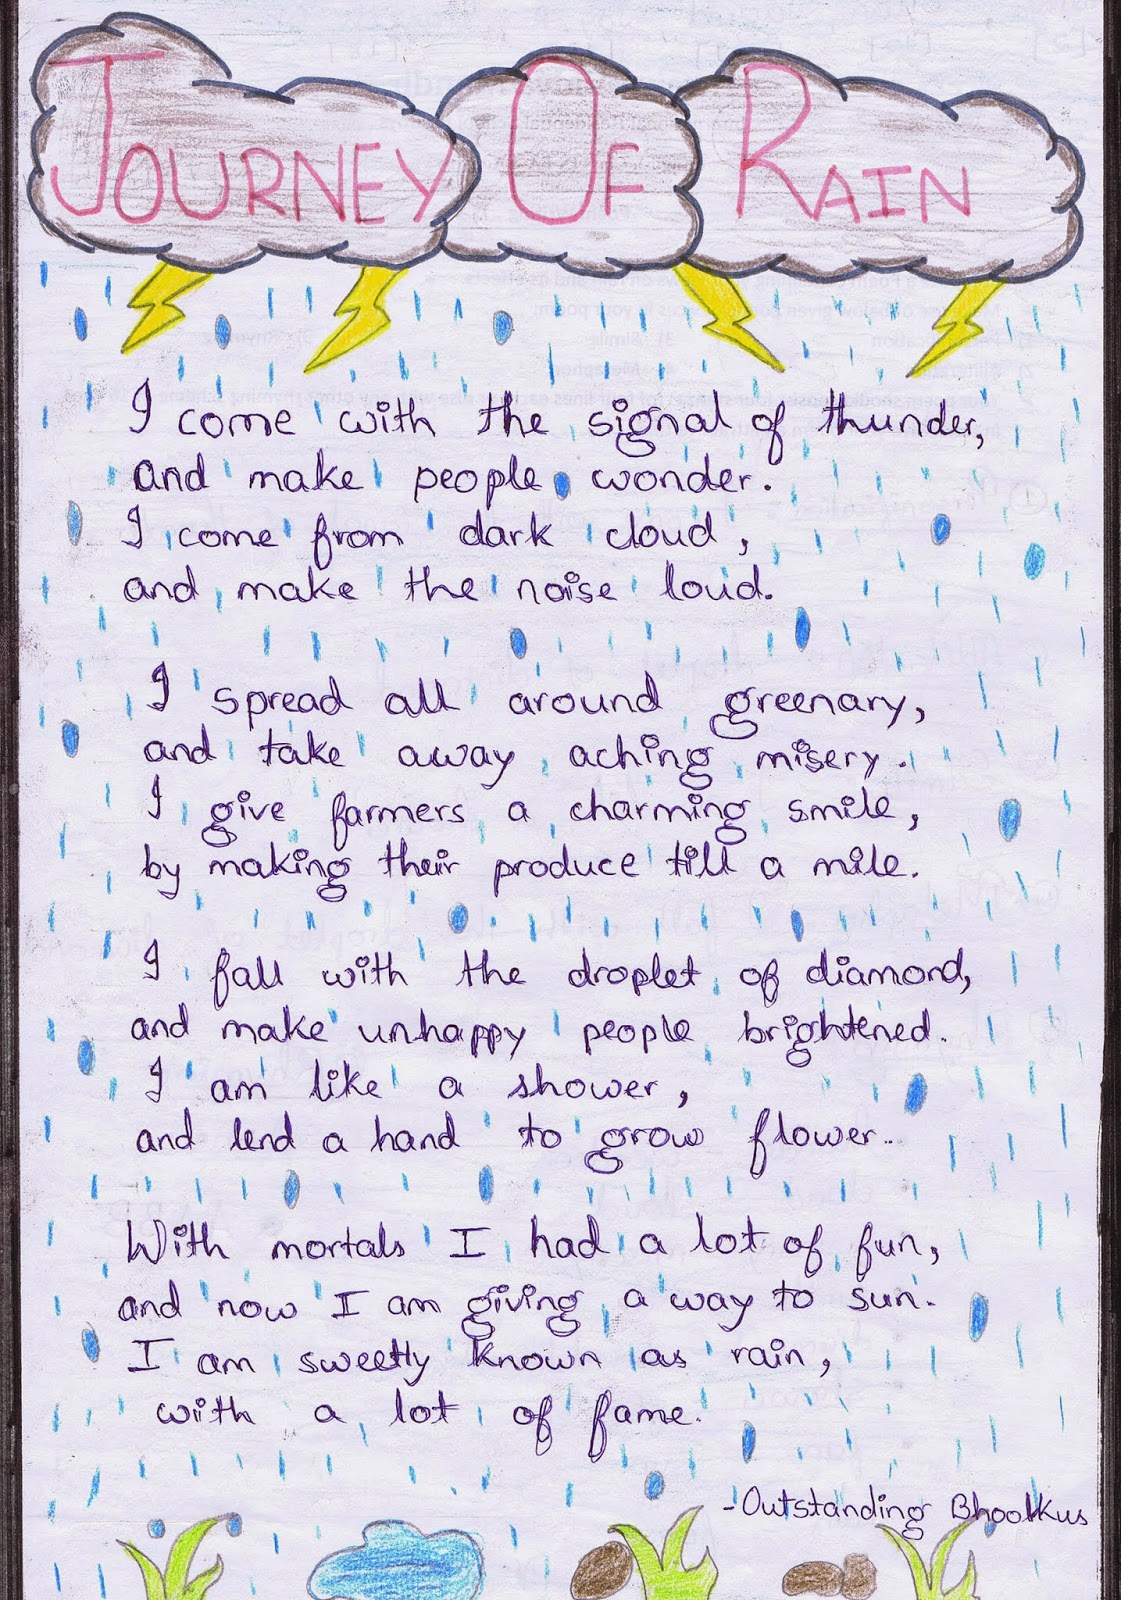 JOURNEY OF RAIN
I come with the signal of thunder,
and make people wonder.
I come from dark cloud,
and make the noise loud.
I spread all around greenary,
and take away aching misery.
I give farmers a charming smile,
by making their produce till a mile.
I fall with the droplet of diamond,
and make unhappy people brightened.
I am like a shower,
and lend a hand to grow flower..
With mortals I had a lot of fun,
and now I am giving a way to sun.
I am sweetly known as rain,
with a lot of fame.
-Outstanding Bhoolkus